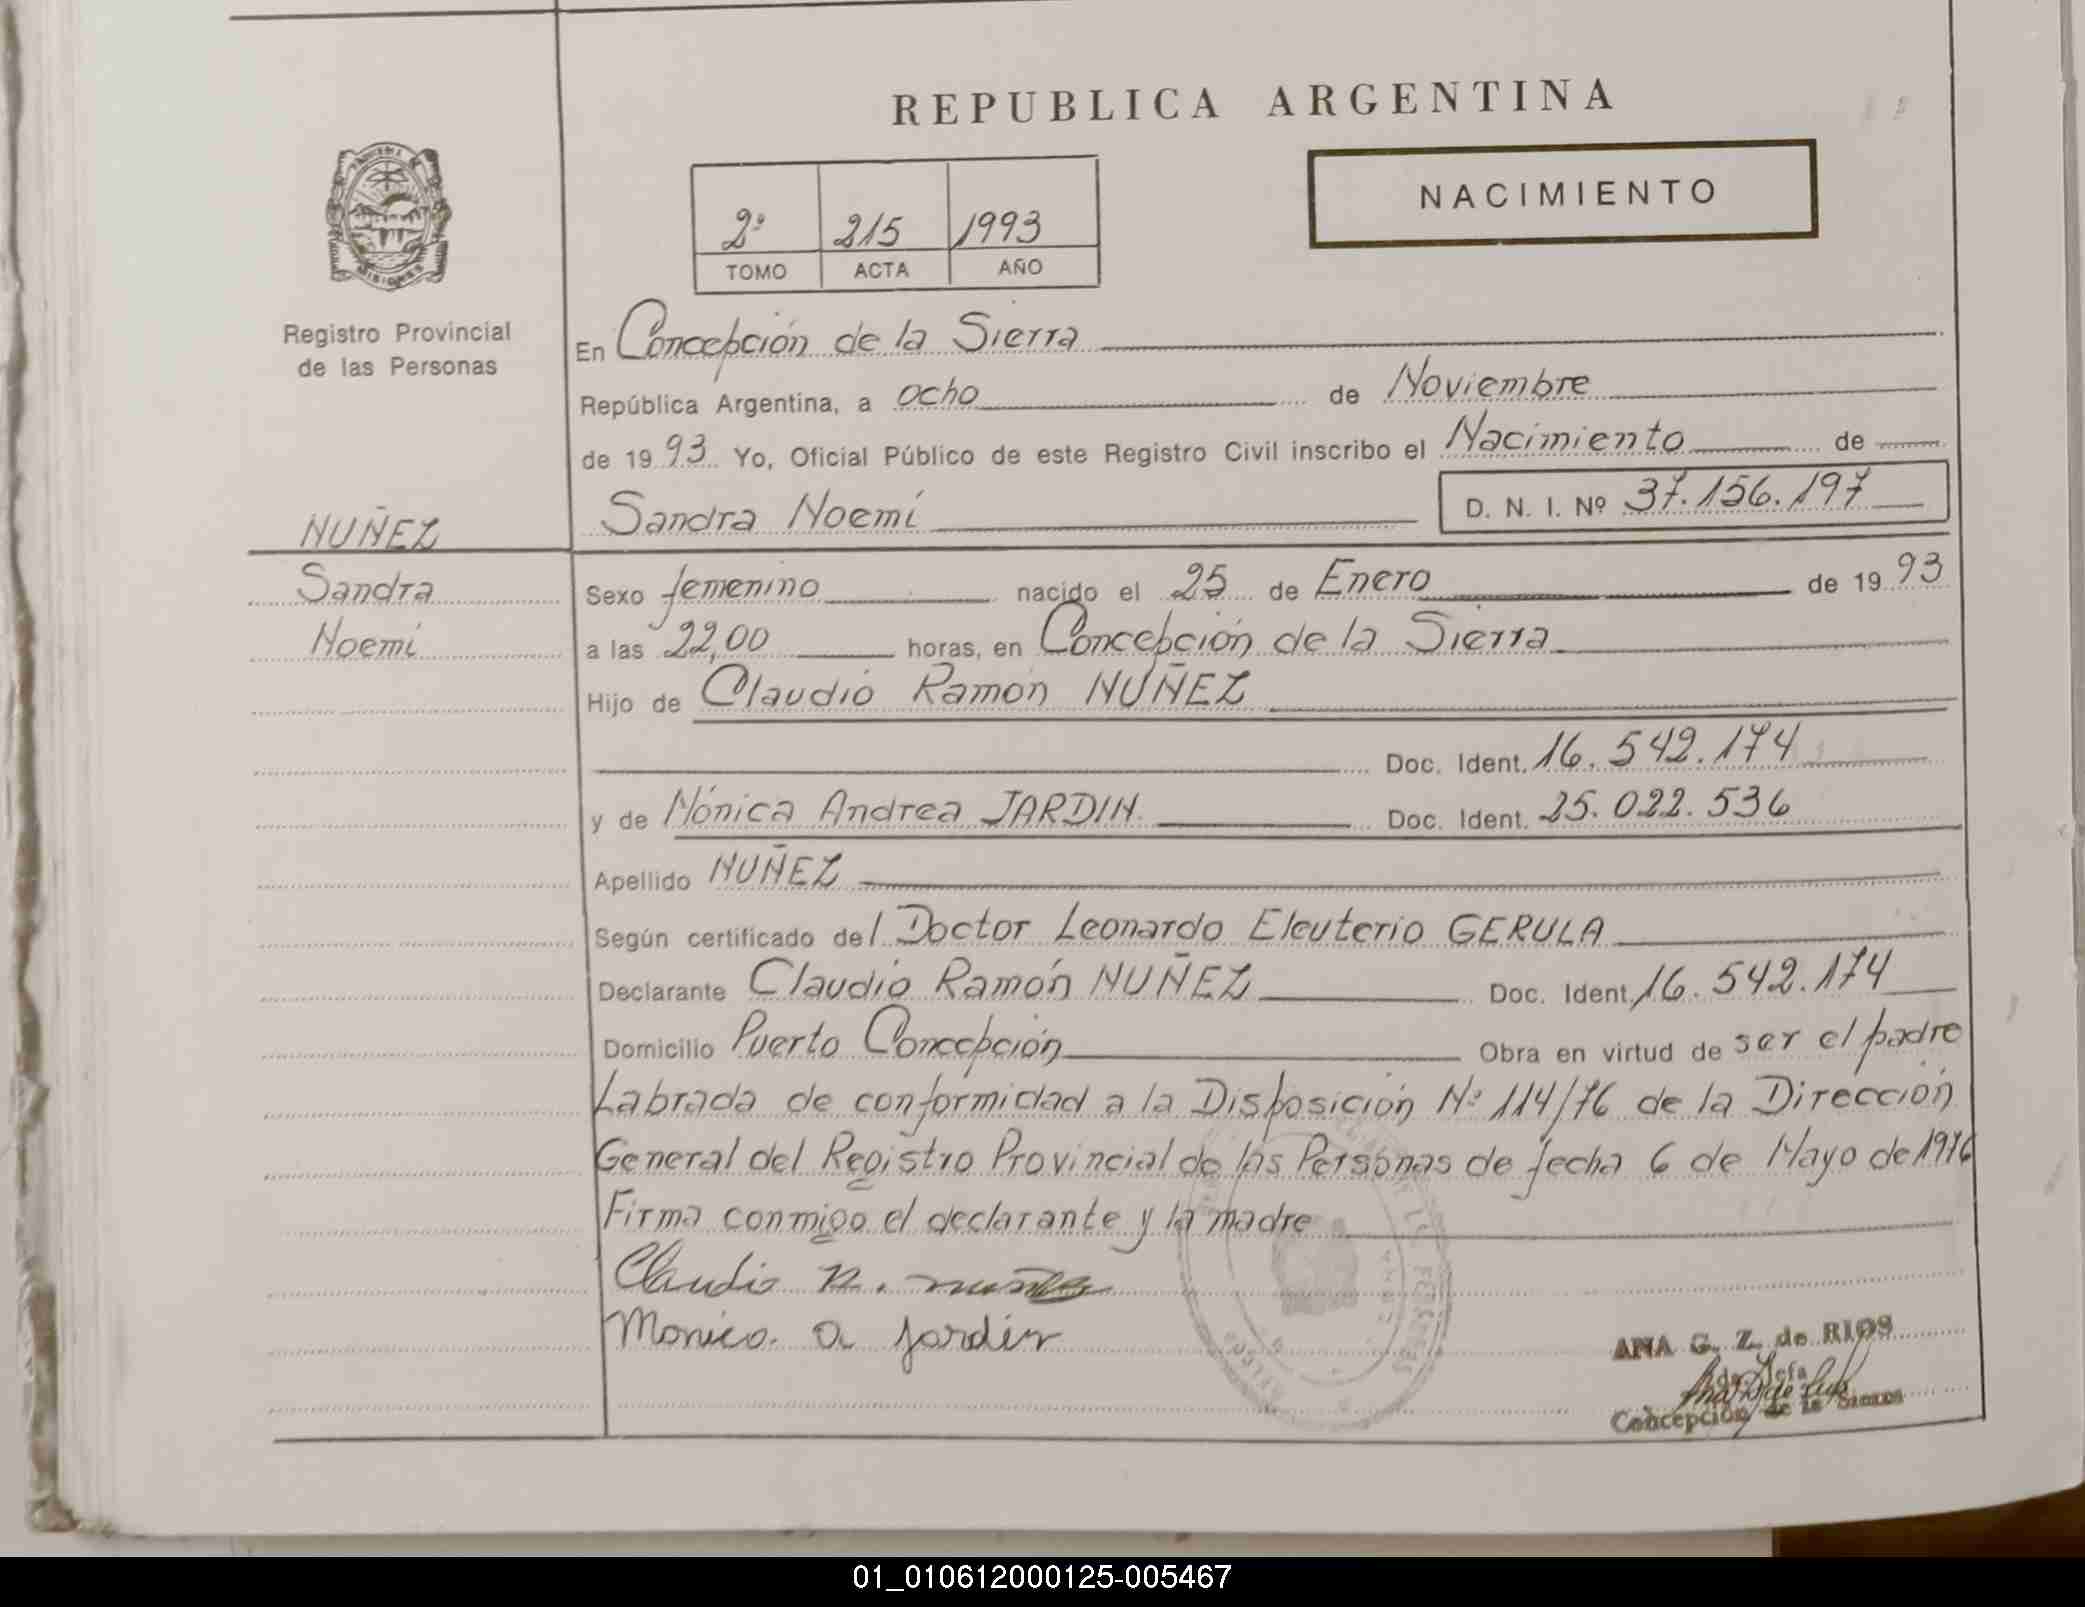 REPUBLICA ARGENTINA
NACIMIENTO
2º 215 1993
TOMO ACTA AÑO
MISIONES
Registro Provincial
de las Personas
En Concepción de la Sierra
República Argentina, a ocho de Noviembre
de 1993 Yo, Oficial Público de este Registro Civil inscribo el Nacimiento de
Sandra Noemí D. N. I. Nº 37.156.197
NUÑEZ
Sandra
Noemí
Sexo femenino nacido el 25 de Enero de 1993
a las 22,00 horas, en Concepción de la Sierra
Hijo de Claudio Ramón NUÑEZ
Doc. Ident. 16.542.174
y de Mónica Andrea JARDIN Doc. Ident. 25.022.536
Apellido NUÑEZ
Según certificado del Doctor Leonardo Eleuterio GERULA
Declarante Claudio Ramón NUÑEZ Doc. Ident. 16.542.174
Domicilio Puerto Concepción Obra en virtud de ser el padre
Labrada de conformidad a la Disposición Nº 114/76 de la Dirección
General del Registro Provincial de las Personas de fecha 6 de Mayo de 1976
Firma conmigo el declarante y la madre
Claudio R. nuñez
Monica a Jardin
ANA G. Z. de RIOS
Jefa
Concepción de la Sierra
01_010612000125-005467